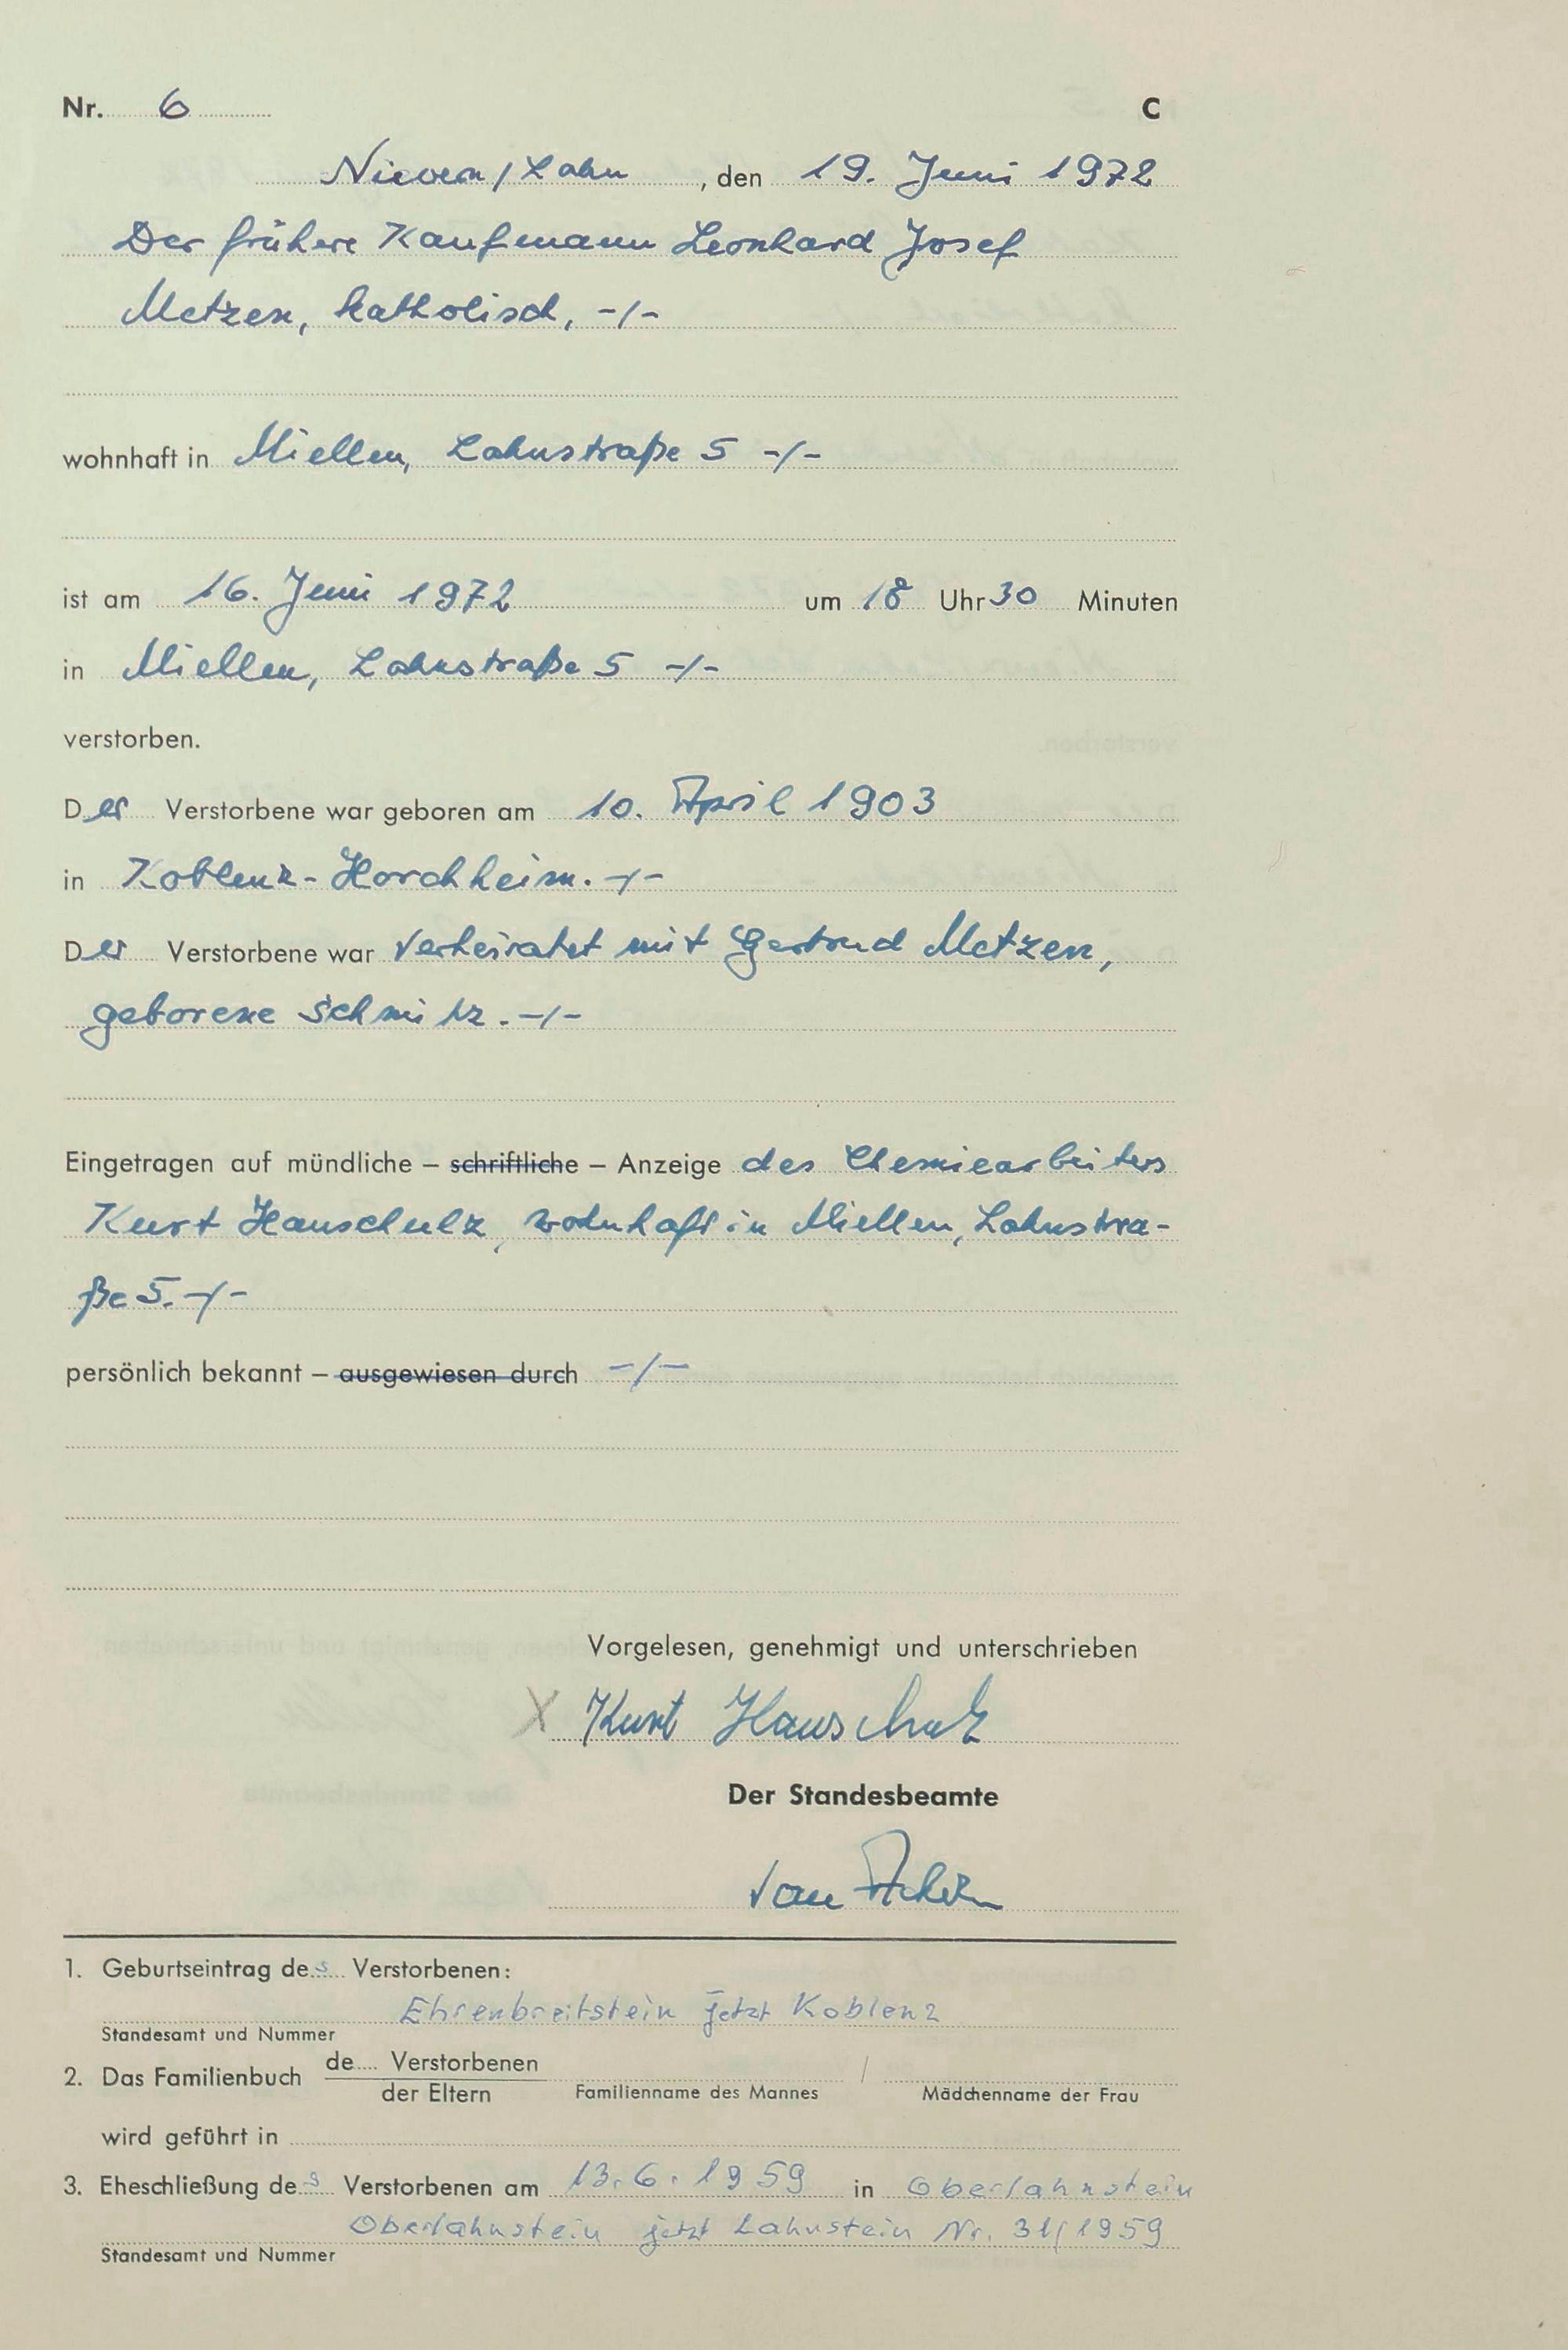 Nr. 6 C
Nievern/Lahn, den 19. Juni 1972
Der frühere Kaufmann Leonhard Josef
Metzen, katholisch, -/-
wohnhaft in Miellen, Lahnstraße 5 -/-
ist am 16. Juni 1972 um 18 Uhr 30 Minuten
in Miellen, Lahnstraße 5 -/-
verstorben.
Der Verstorbene war geboren am 10. April 1903
in Koblenz-Horchheim. -/-
Der Verstorbene war verheiratet mit Gertrud Metzen,
geborene Schmitz. -/-
Eingetragen auf mündliche – schriftliche – Anzeige des Chemiearbeiters
Kurt Hauschulz, wohnhaft in Miellen, Lahnstra-
ße 5. -/-
persönlich bekannt – ausgewiesen durch -/-
Vorgelesen, genehmigt und unterschrieben
X Kurt Hauschulz
Der Standesbeamte
1. Geburtseintrag des Verstorbenen:
Ehrenbreitstein jetzt Koblenz
Standesamt und Nummer
2. Das Familienbuch de Verstorbenen / 
der Eltern Familienname des Mannes Mädchenname der Frau
wird geführt in
3. Eheschließung des Verstorbenen am 13.6.1959 in Oberlahnstein
Oberlahnstein jetzt Lahnstein Nr. 31/1959
Standesamt und Nummer